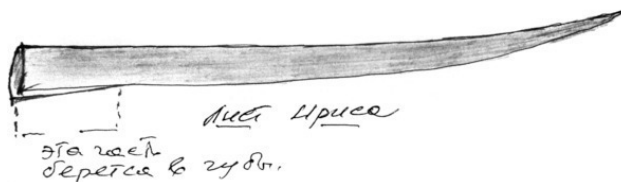 Лист ириса
эта часть
берется в губы.